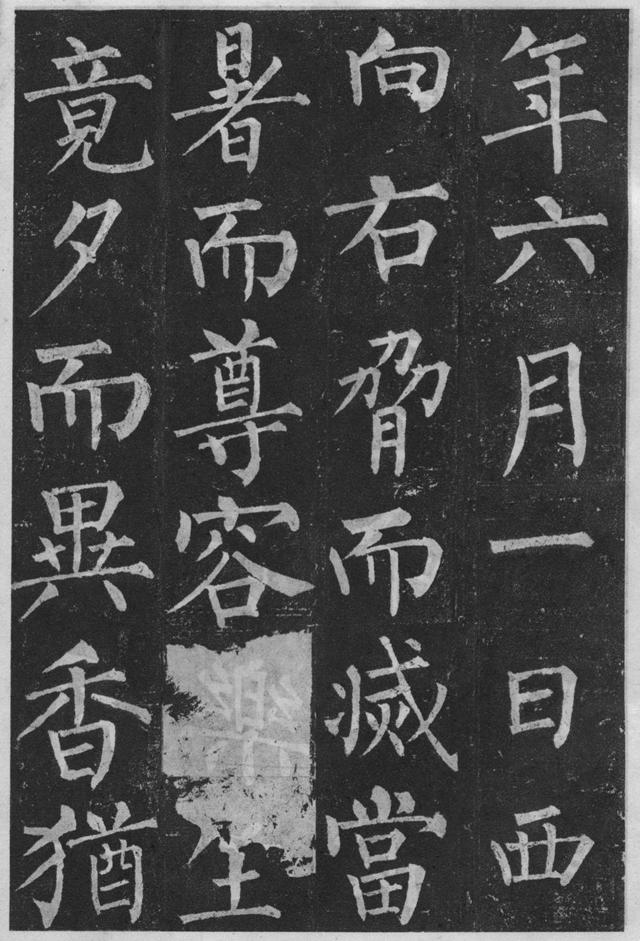 年六月一日西
向右脅而滅當
暑而尊容生
竟夕而異香猶